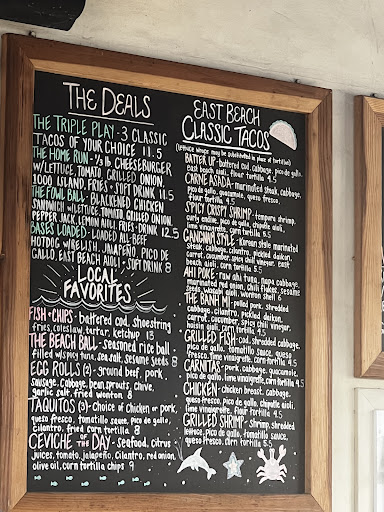 THE DEALS
THE TRIPLE PLAY - 3 CLASSIC
TACOS OF YOUR CHOICE 11.5
THE HOME RUN - 1/3 lb CHEESEBURGER
W/LETTUCE, TOMATO, GRILLED ONION,
1000 ISLAND, FRIES + SOFT DRINK 11.5
THE FOWL BALL - BLACKENED CHICKEN
SANDWICH W/LETTUCE, TOMATO, GRILLED ONION,
PEPPER JACK, LEMON AIOLI, FRIES + DRINK 12.5
BASES LOADED - LOADED ALL-BEEF
HOTDOG W/RELISH, JALAPEÑO, PICO DE
GALLO, EAST BEACH AIOLI + SOFT DRINK 8
LOCAL
FAVORITES
FISH + CHIPS - battered cod, shoestring
fries, coleslaw, tartar, ketchup 13
THE BEACH BALL - seasoned rice ball
filled w/spicy tuna, sea salt, sesame seeds 8
EGG ROLLS (2) - ground beef, pork,
sausage, cabbage, bean sprouts, chive,
garlic salt, fried wonton 8
TAQUITOS (3) - choice of chicken or pork,
queso fresco, tomatillo sauce, pico de gallo,
cilantro, fried corn tortilla 8
CEVICHE OF THE DAY - seafood, citrus
juices, tomato, jalapeño, cilantro, red onion,
olive oil, corn tortilla chips 9
EAST BEACH
CLASSIC TACOS
(lettuce wraps may be substituted in place of tortillas)
BATTER UP - battered cod, cabbage, pico de gallo,
east beach aioli, flour tortilla 4.5
CARNE ASADA - marinated steak, cabbage,
pico de gallo, guacamole, queso fresco,
flour tortilla 4.5
SPICY CRISPY SHRIMP - tempura shrimp,
curly endive, pico de gallo, chipotle aioli,
lime vinaigrette, corn tortilla 5.5
GANGNAM STYLE - Korean style marinated
steak, cabbage, cilantro, pickled daikon,
carrot, cucumber, spicy chili vinegar, east
beach aioli, corn tortilla 5.5
AHI POKE - raw ahi tuna, napa cabbage,
marinated red onion, chili flakes, sesame
seeds, wasabi aioli, wonton shell 6
THE BANH MI - pulled pork, shredded
cabbage, cilantro, pickled daikon,
carrot, cucumber, spicy chili vinegar,
hoisin aioli, corn tortilla 4.5
GRILLED FISH - cod, shredded cabbage,
pico de gallo, tomatillo sauce, queso
fresco, lime vinaigrette, corn tortilla 4.5
CARNITAS - pork, cabbage, guacamole,
pico de gallo, lime vinaigrette, corn tortilla 4.5
CHICKEN - chicken breast, cabbage,
queso fresco, pico de gallo, chipotle aioli,
lime vinaigrette, flour tortilla 4.5
GRILLED SHRIMP - shrimp, shredded
lettuce, pico de gallo, tomatillo sauce,
queso fresco, corn tortilla 5.5